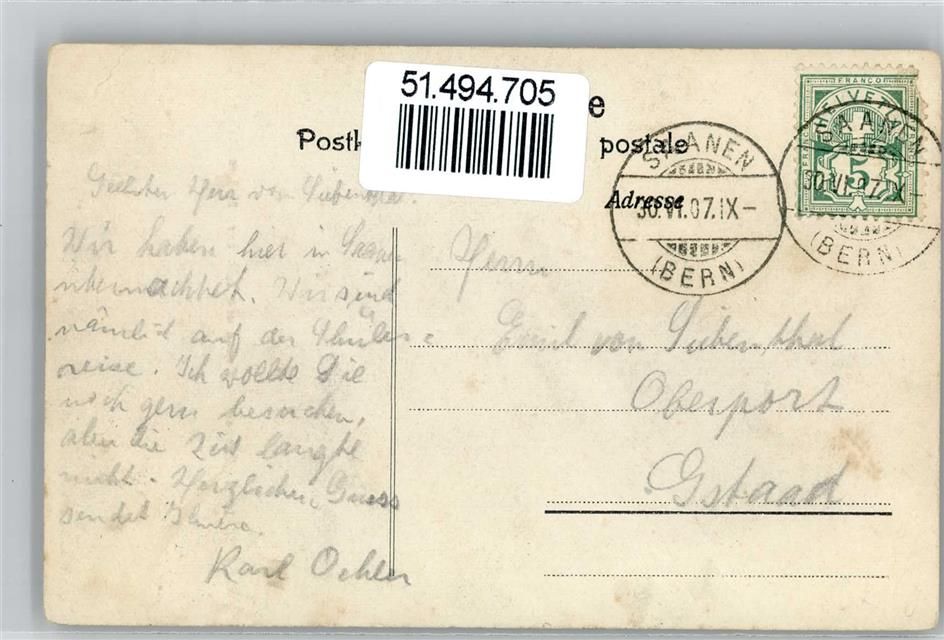 51.494.705
e
Postk
postale
Adresse
FRANCO
HELVETIA
5
SAANEN
30.VI.07.IX-
(BERN)
SAANEN
30.VI.07.IX-
(BERN)
Geehrter Herr von Siebenthal.
Wir haben hier in Saanen
übernachtet. Wir sind
nämlich auf der Schüler=
reise. Ich wollte Sie
noch gern besuchen,
aber die Zeit langte
nicht. Herzlichen Gruss
sendet
Karl Oehler
Herrn
Emil von Siebenthal
Oberport
Gstaad